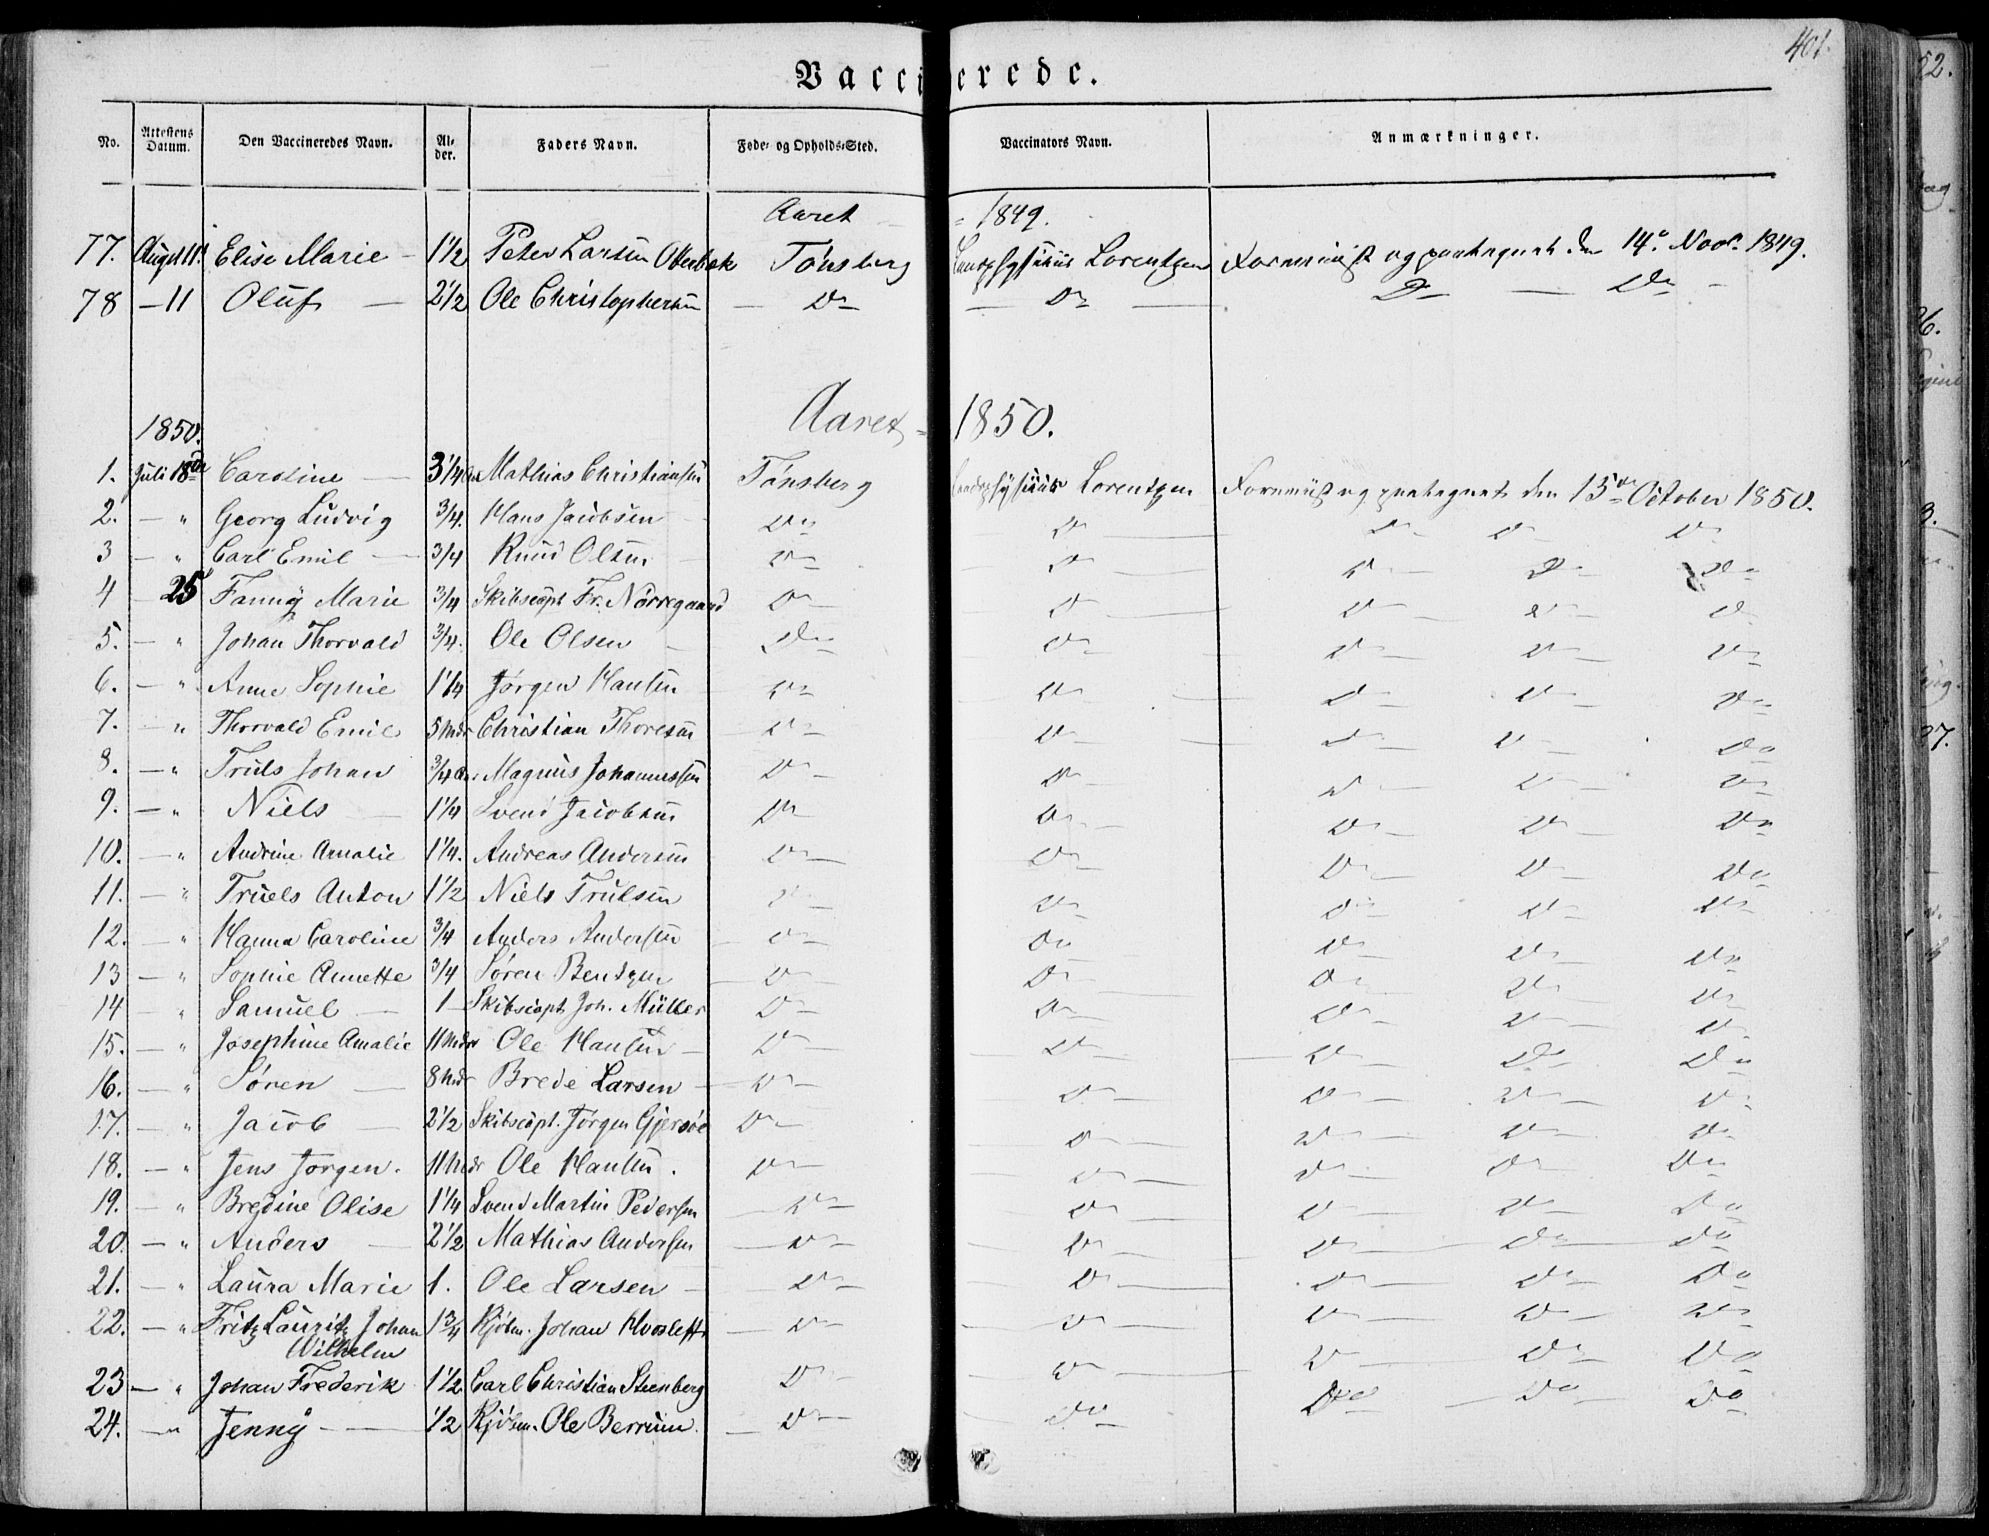 401.
Vaccinerede.
No. Attestens Datum. Den Vaccineredes Navn. Alder. Faders Navn. Føde- og Opholds-Sted. Vaccinators Navn. Anmærkninger.
Aaret = 1849.
77. August 11. Elise Marie – 1 1/2 Peter Larsen Otterbek Tønsberg Landphysicus Lorentzen Foreviist og paategnet den 14de Novr. 1849.
78 – 11 Oluf – 2 1/2 Ole Christophersen – Do – Do – Do – Do –
Aaret = 1850.
1850.
1. Juli 18de Caroline – 3 1/4 Aar Mathias Christiansen Tønsberg Landphysicus Lorentzen Foreviist og paategnet den 15de October 1850.
2. – " Georg Ludvig 3/4. Hans Jacobsen Do Do Do Do Do
3 – " Carl Emil – 3/4 Knud Olsen Do Do Do Do Do
4 25 Fanny Marie 3/4 Skibscapt Fr. Nørregaard Do Do Do Do Do
5. – " Johan Thorvald 3/4. Ole Olsen – Do Do Do Do Do
6. – " Anne Sophie 1 1/4 Jørgen Hansen Do Do Do Do Do
7. – " Thorvald Emil 5 Mdr Christian Thoresen Do Do Do Do Do
8. – " Truls Johan 3/4 Aar Magnus Johannessen Do Do Do Do Do
9. – " Niels – 1 1/4 Svend Jacobsen Do Do Do Do Do
10. – " Andrine Amalie 1 1/4. Andreas Andersen Do Do Do Do Do
11. – " Truels Anton 1 1/2 Niels Trulsen Do Do Do Do Do
12. – " Hanna Caroline 3/4 Anders Andersen Do Do Do Do Do
13 – " Sophie Annette 3/4 Søren Bentzen Do Do Do Do Do
14 – " Samuel – 1 – Skibscapt Joh. Müller Do Do Do Do Do
15. – " Josephine Amalie 11 Mdr Ole Hansen – Do Do Do Do Do
16. – " Søren – 8 Mdr Brede Larsen – Do Do Do Do Do
17. – " Jacob – 2 1/2 Skibscapt. Jørgen Gjersøe Do Do Do Do Do
18. – " Jens Jørgen. 11 Mdr Ole Hansen. Do Do Do Do Do
19. – " Bredine Olise 1 1/4 Svend Martin Pedersen Do Do Do Do Do
20. – " Anders – 2 1/2 Mathias Andersen Do Do Do Do Do
21. – " Laura Marie 1. Ole Larsen – Do Do Do Do Do
22. – " Fritz Lauritz Johan 1 3/4 Kjøbm. Johan Do Do Do Do Do
Wilhelm
23 – " Johan Frederik 1 1/2 Carl Christian Steenberg Do Do Do Do Do
24. – " Jenny – 1/2 Kjøbm. Ole Berrum. Do Do Do Do Do